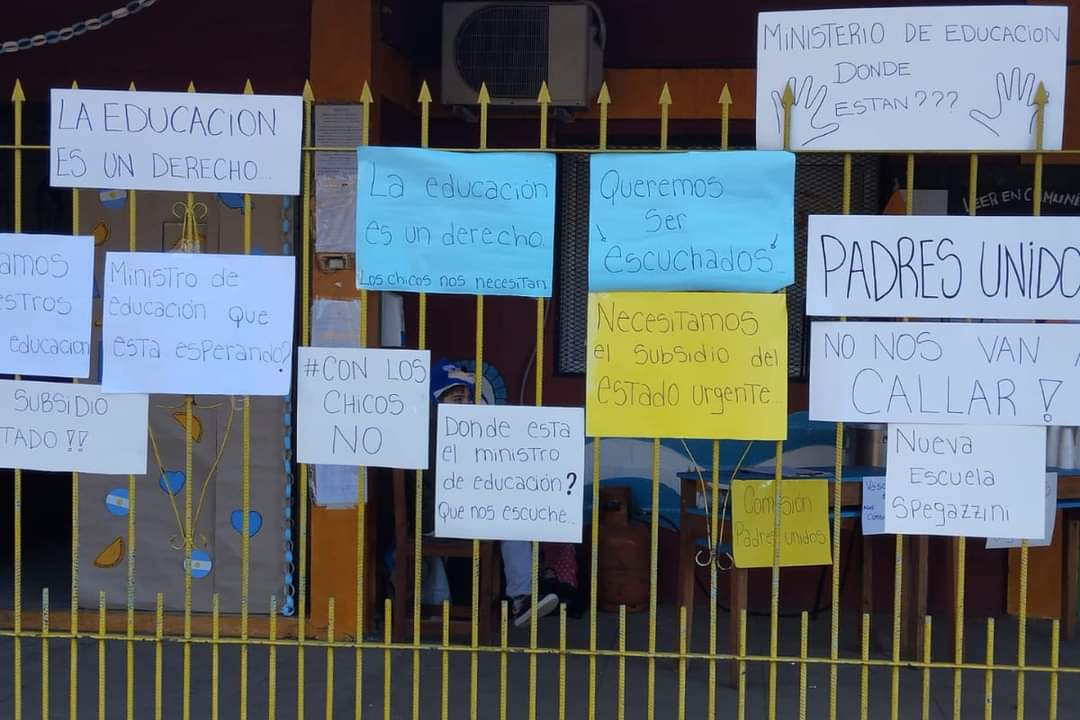 MINISTERIO DE EDUCACION
DONDE
ESTAN???
LA EDUCACION
ES UN DERECHO...
La educación
es un derecho
Los chicos nos necesitan
Queremos
ser
¡escuchados!...
LEER EN COMUNI
PADRES UNIDO
AMOS
ESTROS
educacion
Ministro de
educación que
esta esperando?
Necesitamos
el subsidio del
estado urgente...
NO NOS VAN A
CALLAR!
#CON LOS
CHICOS
NO
SUBSIDIO
TADO!!
Donde esta
el ministro
de educación?
Que nos escuche...
Nueva
Escuela
Spegazzini
Comisión
Padres unidos